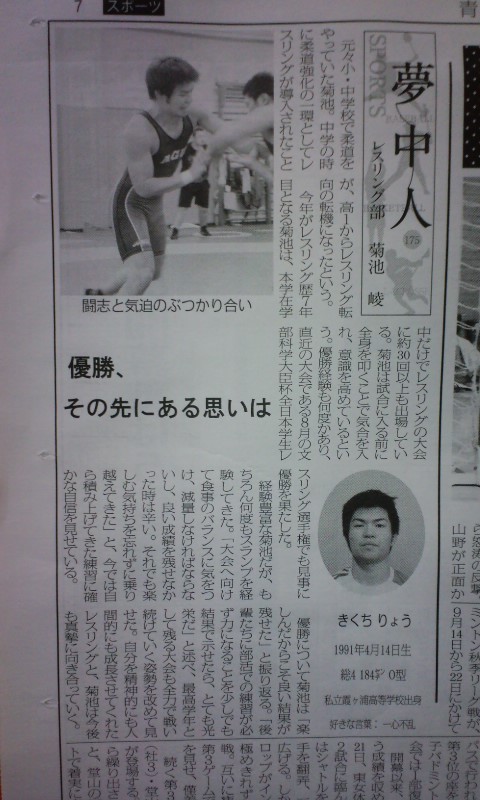 7
スポーツ
青
夢中人
175
レスリング部　菊池　崚
元々小・中学校で柔道を
やっていた菊池。中学の時
に柔道強化の一環としてレ
スリングが導入されたこと
が、高1からレスリング転
向の転機になったという。
今年がレスリング歴7年
目となる菊池は、本学在学
闘志と気迫のぶつかり合い
中だけでレスリングの大会
に約30回以上も出場してい
る。菊池は試合に入る前に
全身を叩くことで気合を入
れ、意識を高めているとい
う。優勝経験も何度かあり、
直近の大会である8月の文
部科学大臣杯全日本学生レ
優勝、
その先にある思いは
スリング選手権でも見事に
優勝を果たした。
経験豊富な菊池だが、も
ちろん何度もスランプを経
験してきた。「大会へ向け
て食事のバランスに気をつ
け、減量しなければならな
いし、良い成績を残せなか
った時は辛い。それでも楽
しむ気持ちを忘れずに乗り
越えてきた」と、今では自
ら積み上げてきた練習に確
かな自信を見せている。
優勝について菊池は「楽
しんだからこそ良い結果が
残せた」と振り返る。「後
輩たちに部活での練習が必
ず力になることを少しでも
結果で示せたら、とても光
栄だ」と述べ、最高学年と
して残る大会も全力で戦い
続けていく姿勢を改めて見
せた。自分を精神的にも人
間的にも成長させてくれた
レスリングと、菊池は今後
も真摯に向き合っていく。
きくち りょう
1991年4月14日生
総4 184㌢ O型
私立霞ヶ浦高等学校出身
好きな言葉：一心不乱
山野が正面か
ミントン秋季リーグ戦
9月14日から22日にかけて